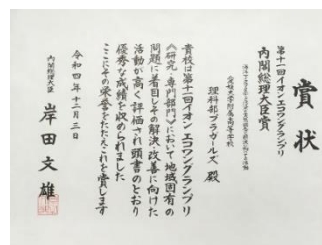 賞状
第十一回イオンエコワングランプリ
内閣総理大臣賞
愛媛大学附属高等学校
理科部プラガールズ 殿
貴校は第十一回イオンエコワングランプリ
(研究・専門部門)において地域固有の
問題に着目しその解決・改善に向けた
活動が高く評価され頭書のとおり
優秀な成績を収められました
ここにその栄誉をたたえこれを賞します
令和四年十二月三日
内閣総理大臣
岸田文雄